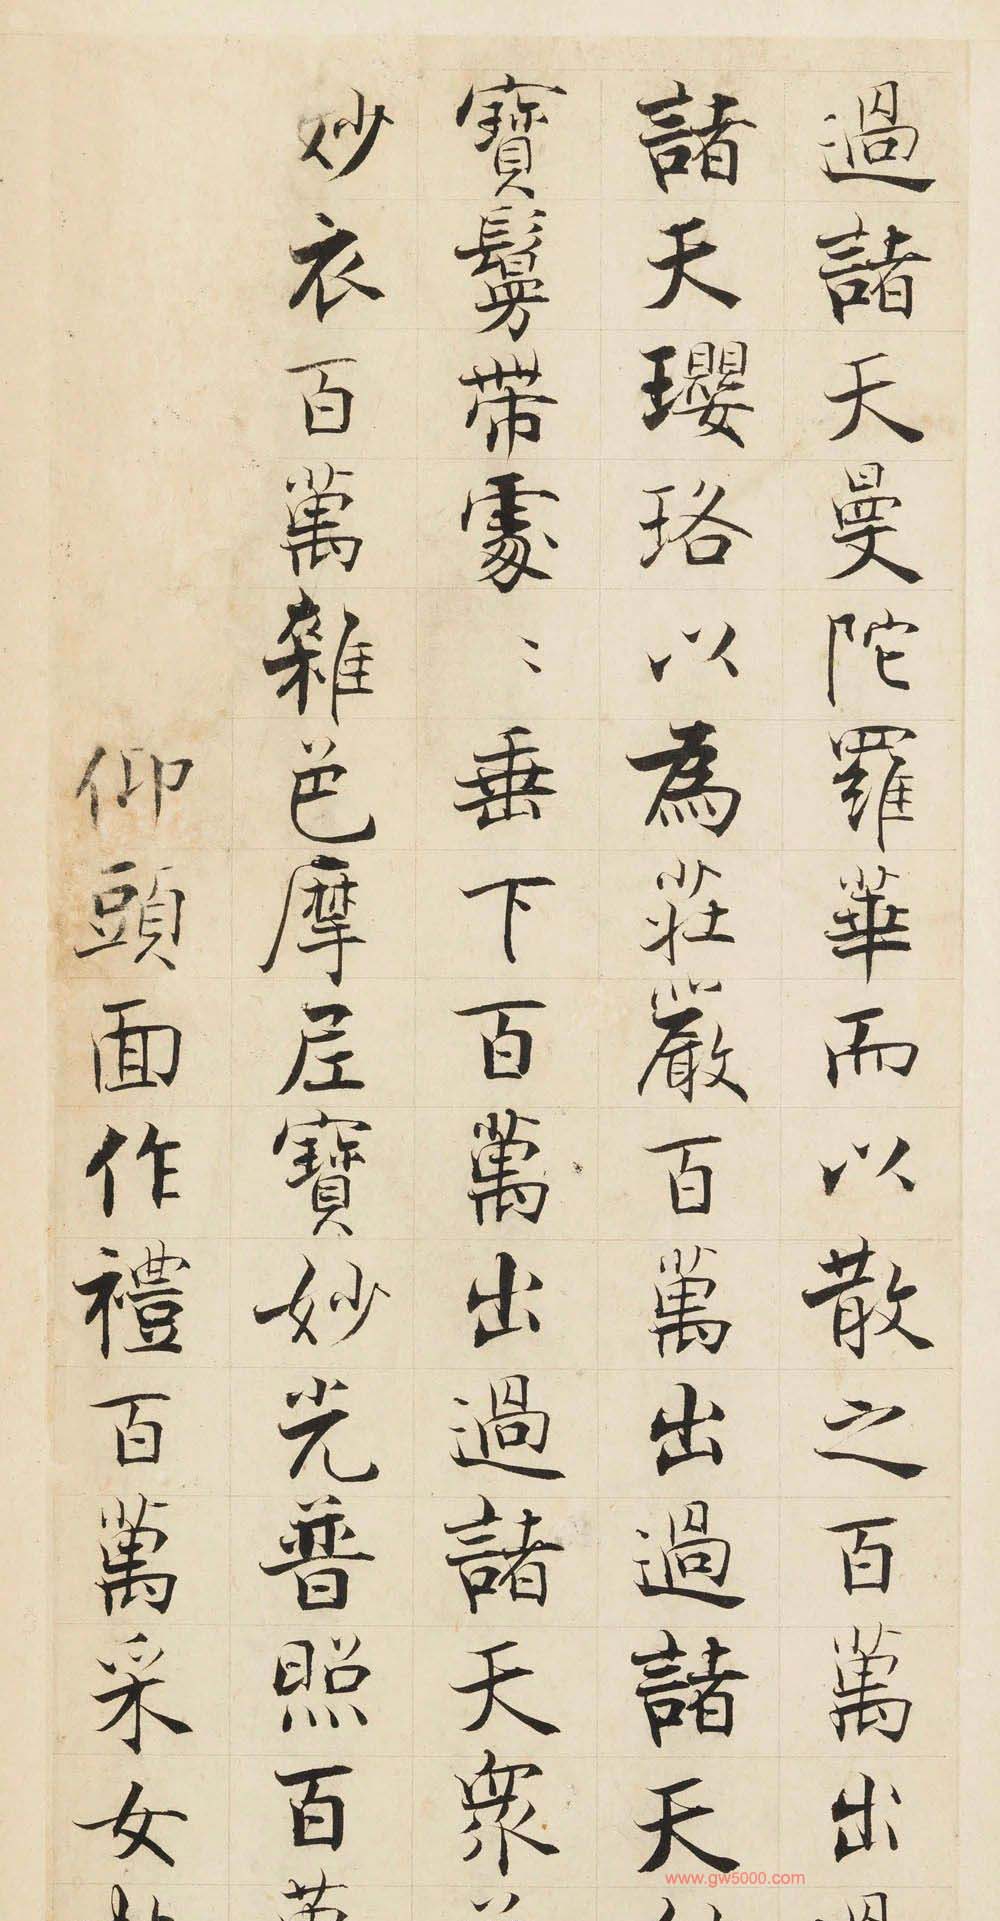 過諸天曼陀羅華而以散之百萬出過
諸天瓔珞以為莊嚴百萬出過諸天
寶鬘帶處〻垂下百萬出過諸天眾
妙衣百萬雜色摩尼寶妙光普照百萬
仰頭面作禮百萬采女
www.gw5000.com